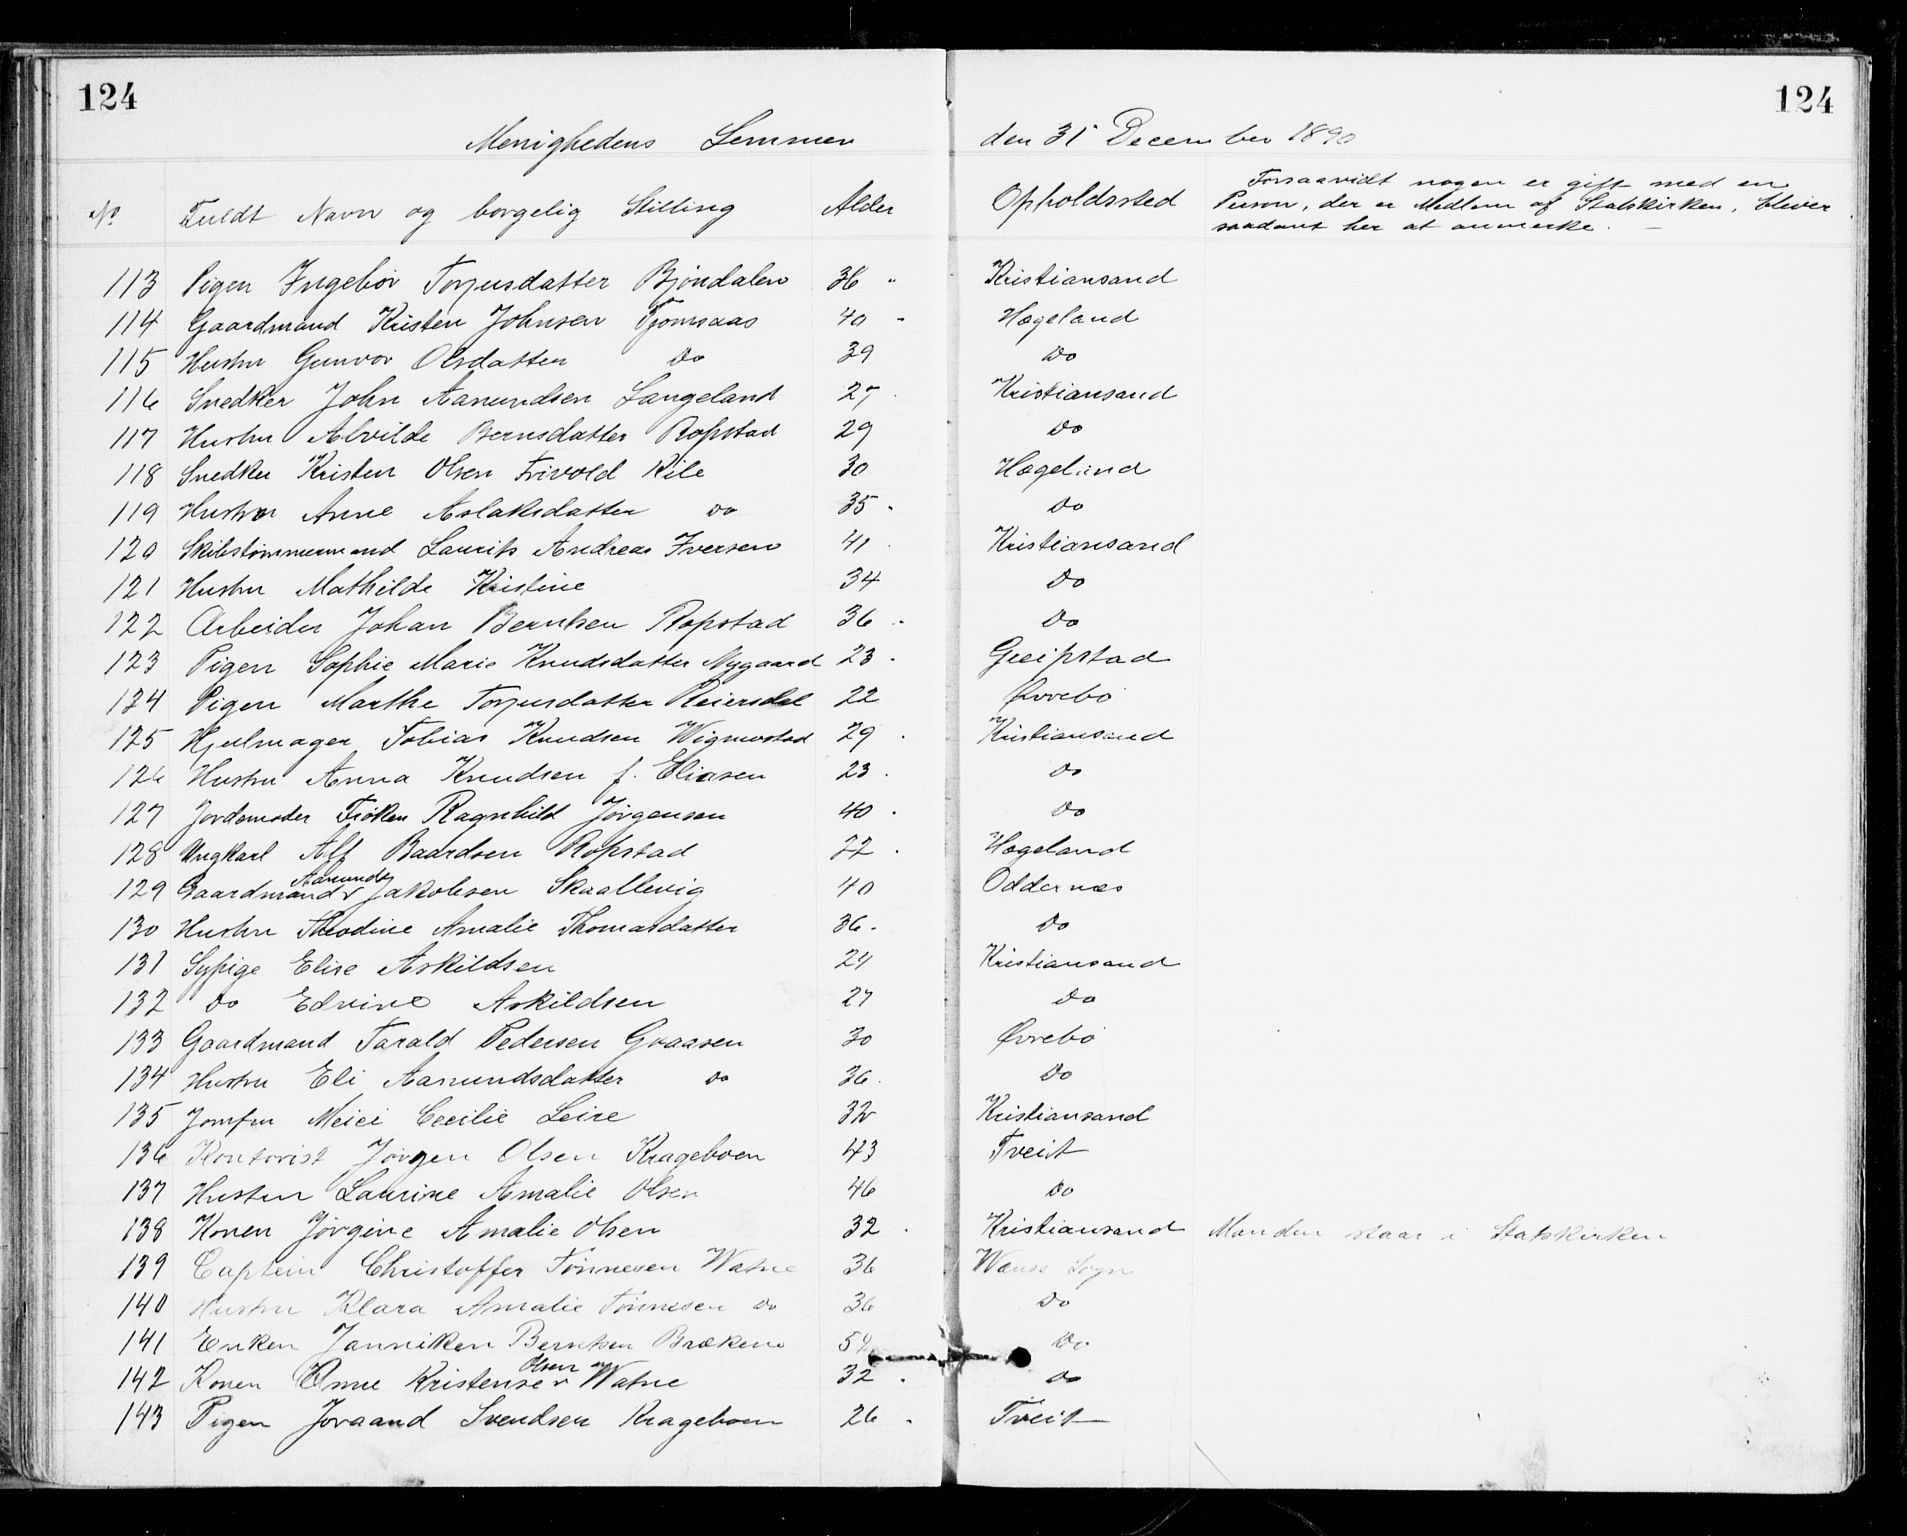 124 124
Menighedens Lemmer den 31 December 1890
No Fuldt Navn og borgelig Stilling Alder Opholdssted Forsaavidt nogen er gift med en
Person, der er Medlem af Statskirken, bliver
saadant her at anmerke. —
113 Pigen Ingebor Torjusdatter Bjöndalen 36 " Kristiansand
114 Gaardmand Kristen Johnsen Tjomsaas 40 - Hægeland
115 Hustru Gunvor Olsdatter Do 39 Do
116 Snedker John Aanundsen Langeland 27 Kristiansand
117 Hustru Alvilde Bernsdatter Ropstad 29 Do
118 Snedker Kristen Olsen Frivold Kile 30 Hægeland
119 Hustru Anne Aslaksdatter do 35 . Do
120 Skibstømmermand Laurits Andreas Iversen 41 Kristiansand
121 Hustru Mathilde Kristine 34 Do
122 Arbeider Johan Berntsen Ropstad 36 . Do
123 Pigen Sophie Marie Knudsdatter Nygaard 23 . Greipstad
124 Pigen Marthe Torjusdatter Reiersdal 22 Øvrebö
125 Hjulmager Tobias Knudsen Wigmostad 29 . Kristiansand
126 Hustru Anna Knudsen f. Eliasen 23 . do
127 Jordemoder Frøken Ragnhild Jørgensen 40 . Do
128 Ungkarl Alf Baardsen Ropstad 22 . Hægeland
Aanund
129 Gaardmand Jakobsen Skaallevig 40 Oddernæs
130 Hustru Theodine Amalie Thomasdatter 36 . Do
131 Sypige Elise Askildsen 24 Kristiansand
132 do Edvine Askildsen 27 Do
133 Gaardmand Tarald Pedersen Graasen 30 Øvrebö
134 Hustru Eli Aanundsdatter do 36 . Do
135 Jomfru Meici Cecilie Leire 32 Kristiansand
136 Kontorist Jörgen Olsen Krageboen 43 Tveit
137 Hustru Laurine Amalie Olsen 46 Do
138 Konen Jörgine Amalie Olsen 32 . Kristiansand Manden staar i Statskirken
139 Captein Christoffer Tönnesen Watne 36 Wanss Sogn
140 Hustru Klara Amalie Tönnesen do 36 Do
141 Enken Janniken Berntsen Brækene 54 Do
Olsen
142 Konen Kristensen Watne 32 . do
143 Pigen Joraand Svendsen Krageboen 26 . Tveit